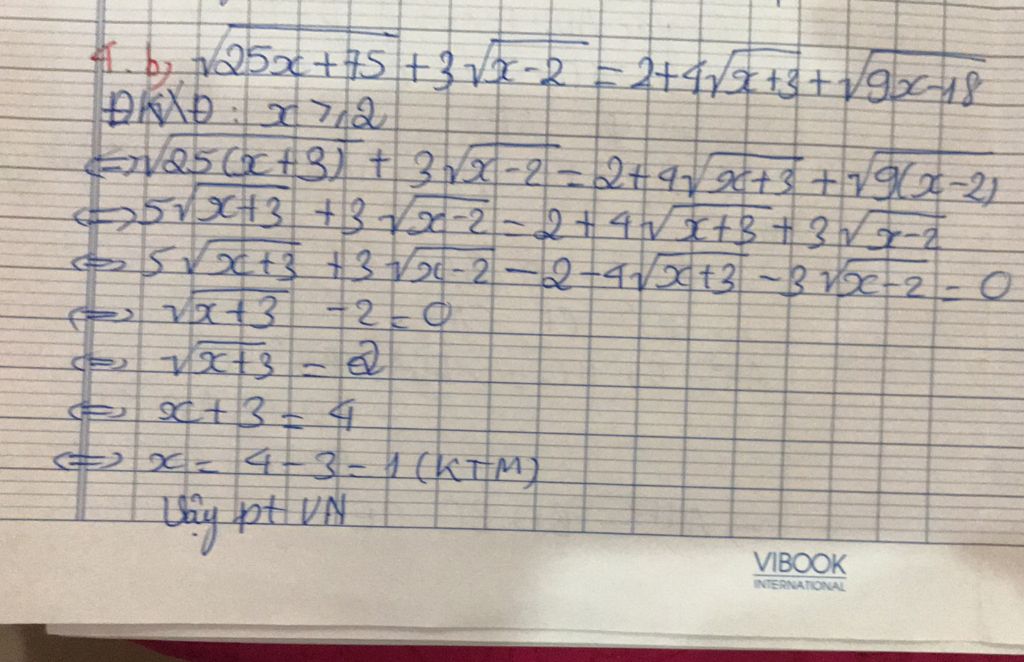 4. b, √25x+75 + 3√x-2 = 2+4√x+3 + √9x-18
ĐKXĐ: x ⩾ 2
⇔ √25(x+3) + 3√x-2 = 2+4√x+3 + √9(x-2)
⇔ 5√x+3 + 3√x-2 = 2 + 4√x+3 + 3√x-2
⇔ 5√x+3 + 3√x-2 - 2 - 4√x+3 - 3√x-2 = 0
⇔ √x+3 - 2 = 0
⇔ √x+3 = 2
⇔ x+3 = 4
⇔ x = 4-3 = 1 (KTM)
Vậy pt VN
VIBOOK
INTERNATIONAL